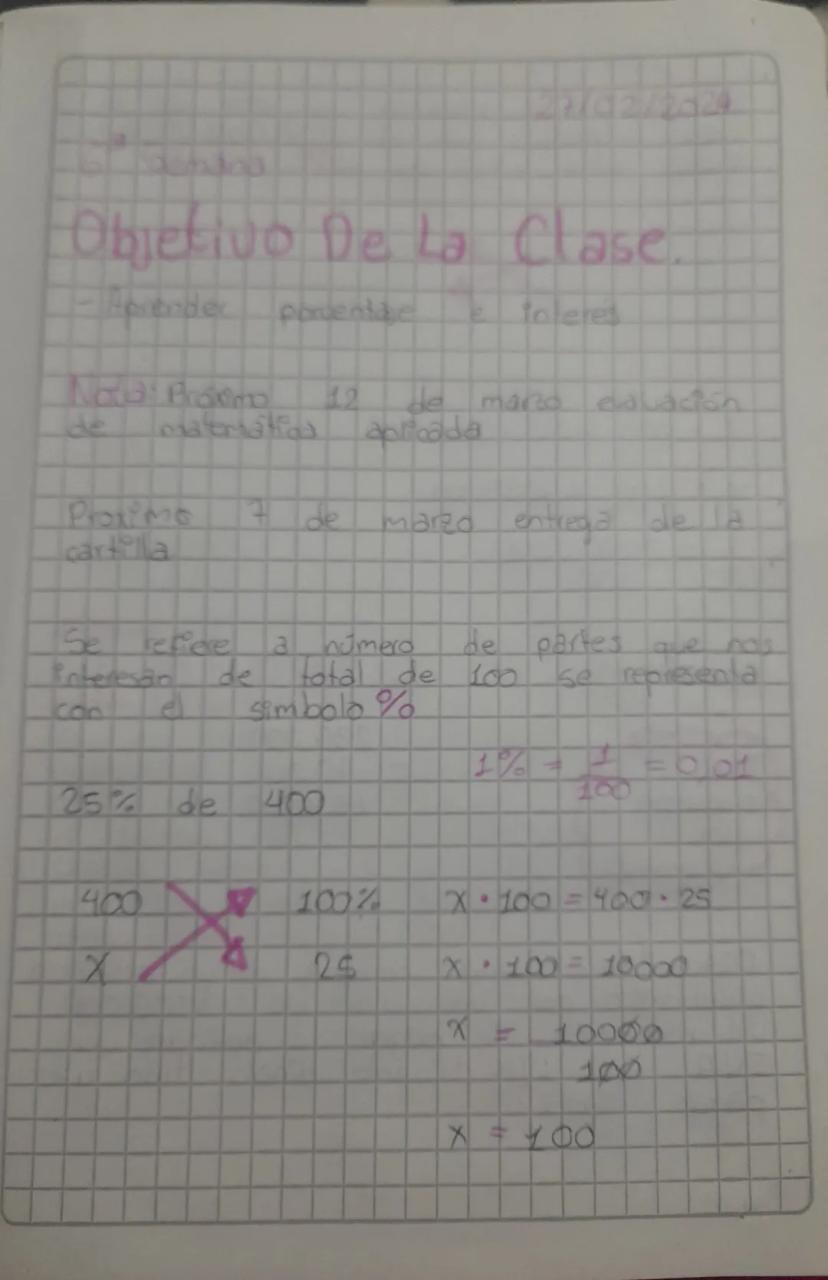 27/02/2024
6ª semana
Objetivo De La Clase.
- Aprender porcentaje e interes
Nota: Próximo 12 de marzo evaluación
de matemáticas aplicada
Proximo 7 de marzo entrega de la
cartilla
Se refiere a número de partes que nos
interesan de total de 100 se representa
con el simbolo %
1% = 1/100 = 0,01
25% de 400
400 100% x · 100 = 400 · 25
x 25 x · 100 = 10000
x = 10000
100
x = 100